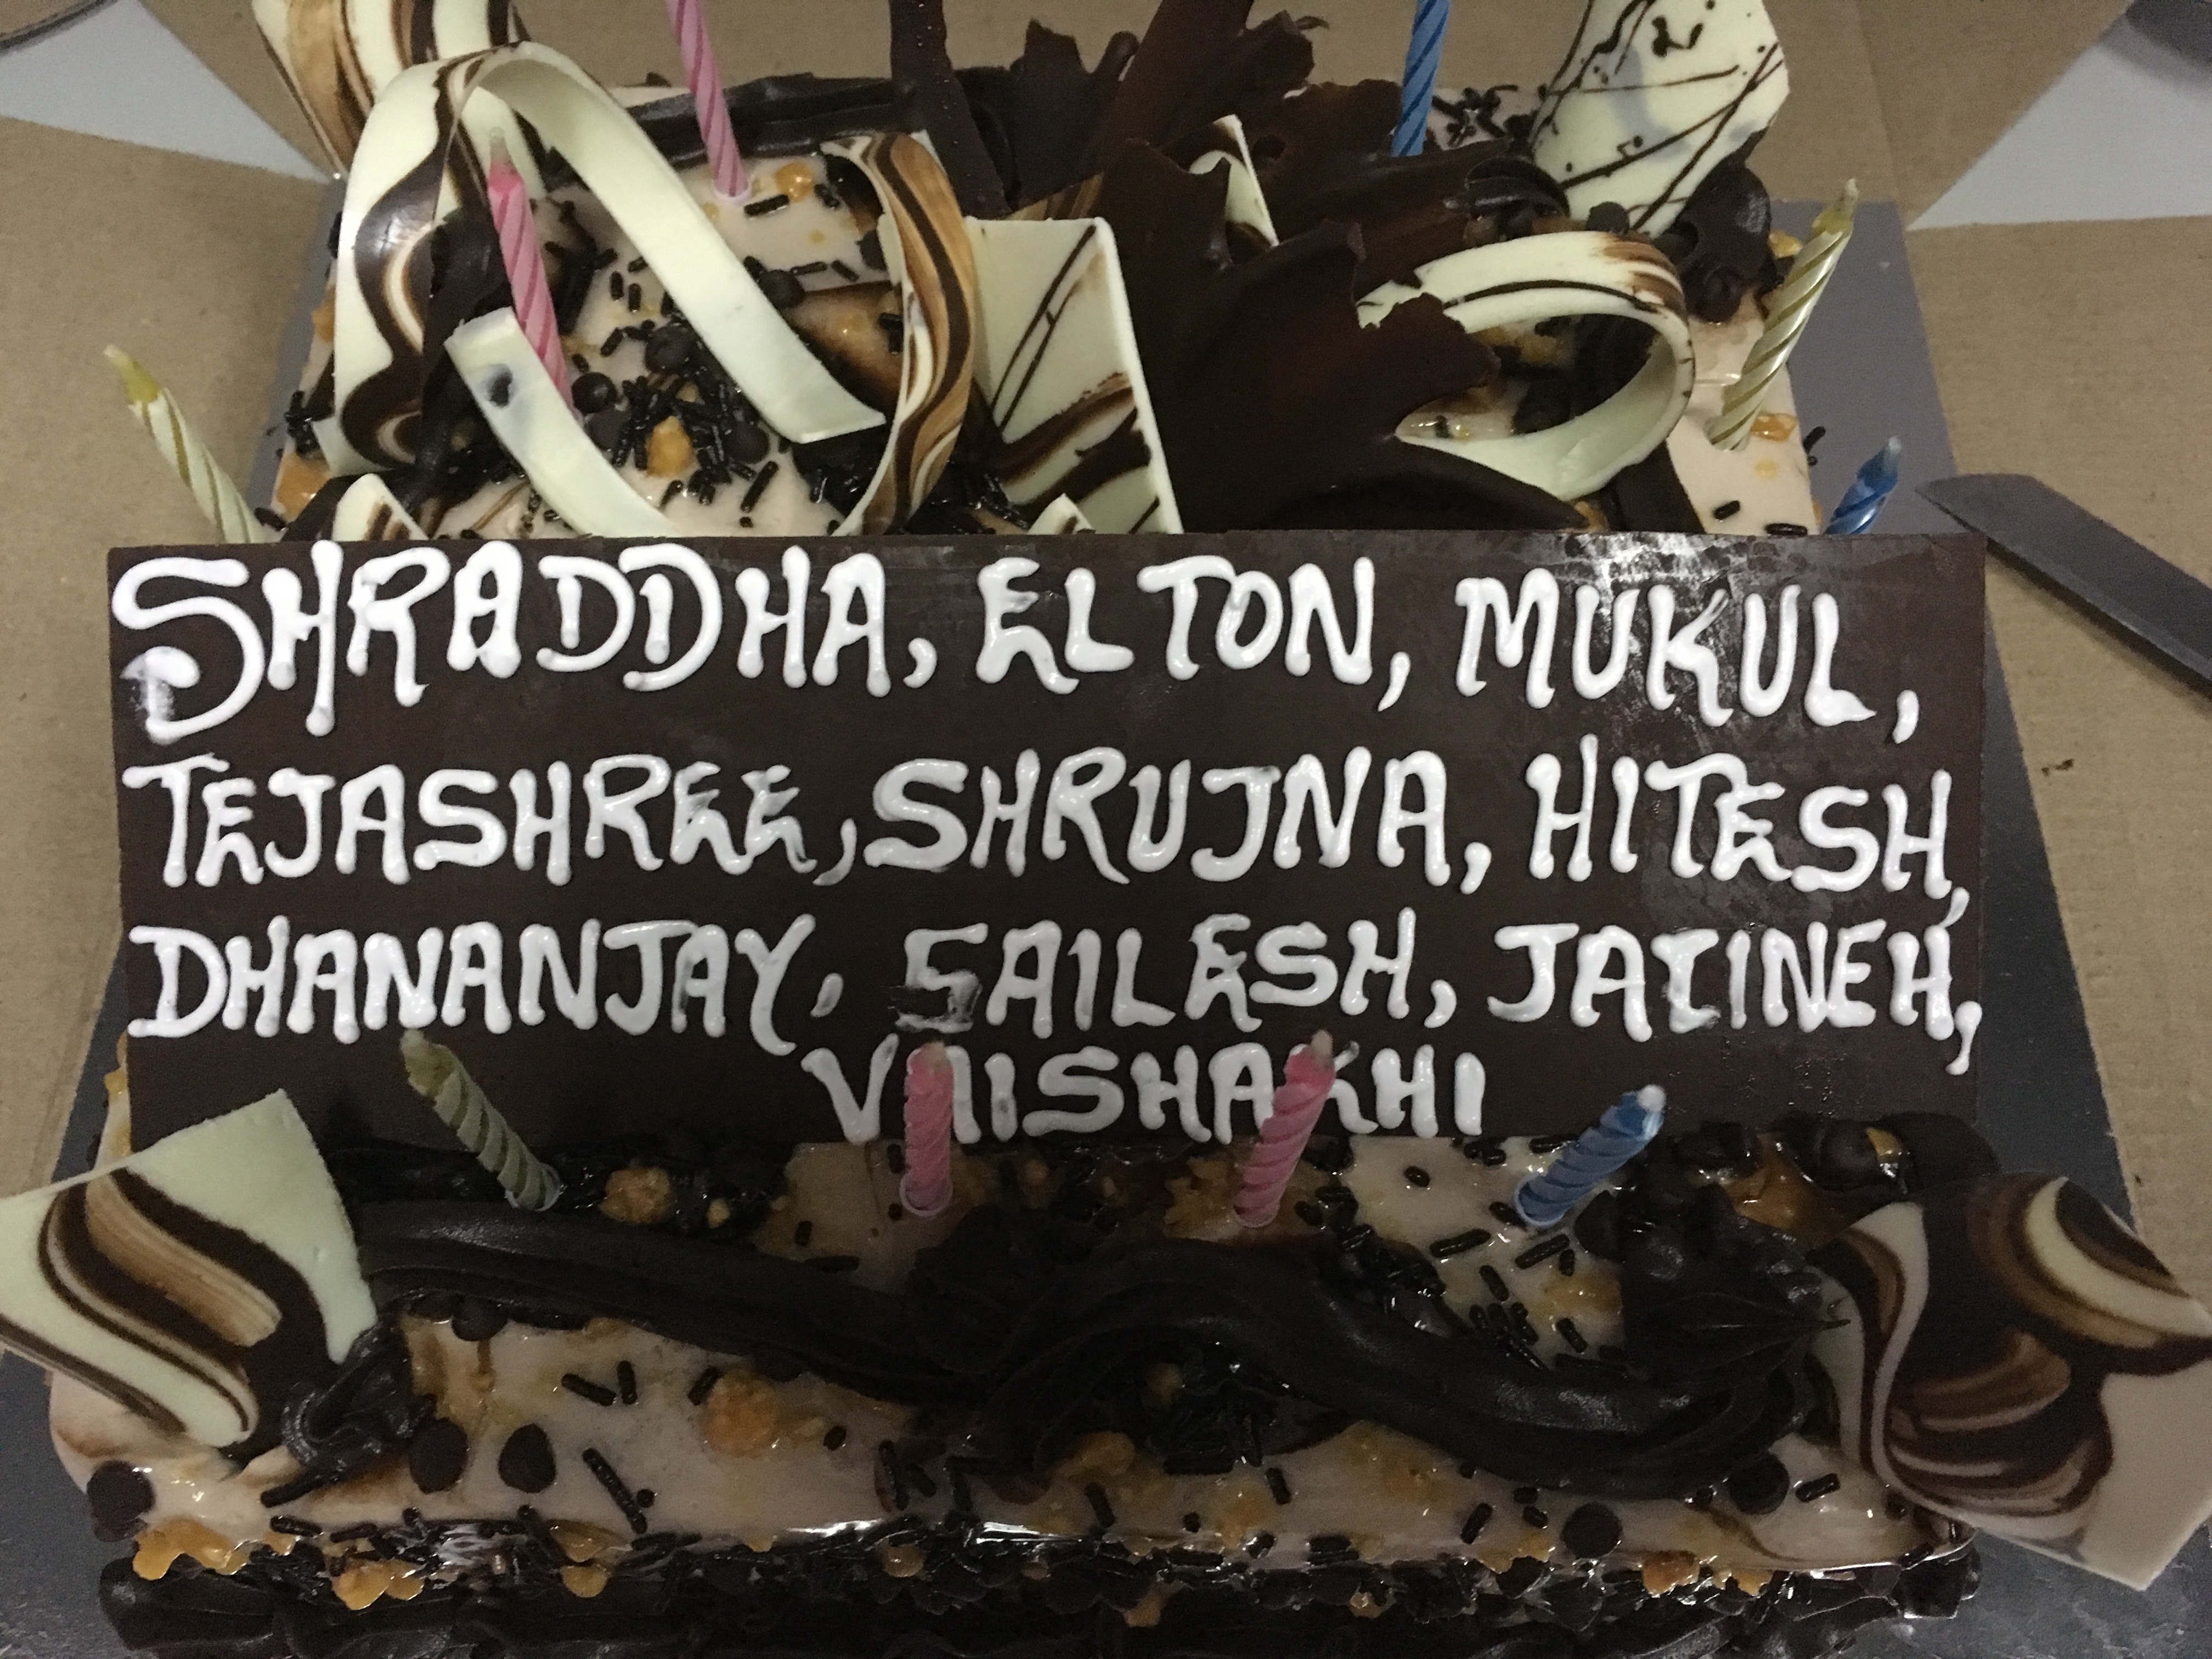 SHRADDHA, ELTON, MUKUL,
TEJASHREE, SHRUJNA, HITESH,
DHANANJAY, SAILESH, JATINEH,
VAISHAKHI